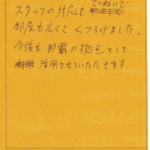 スタッフの対応もていねいで
部屋も広くてくつろげました。
今後も那覇の拠点として
活用させていただきます